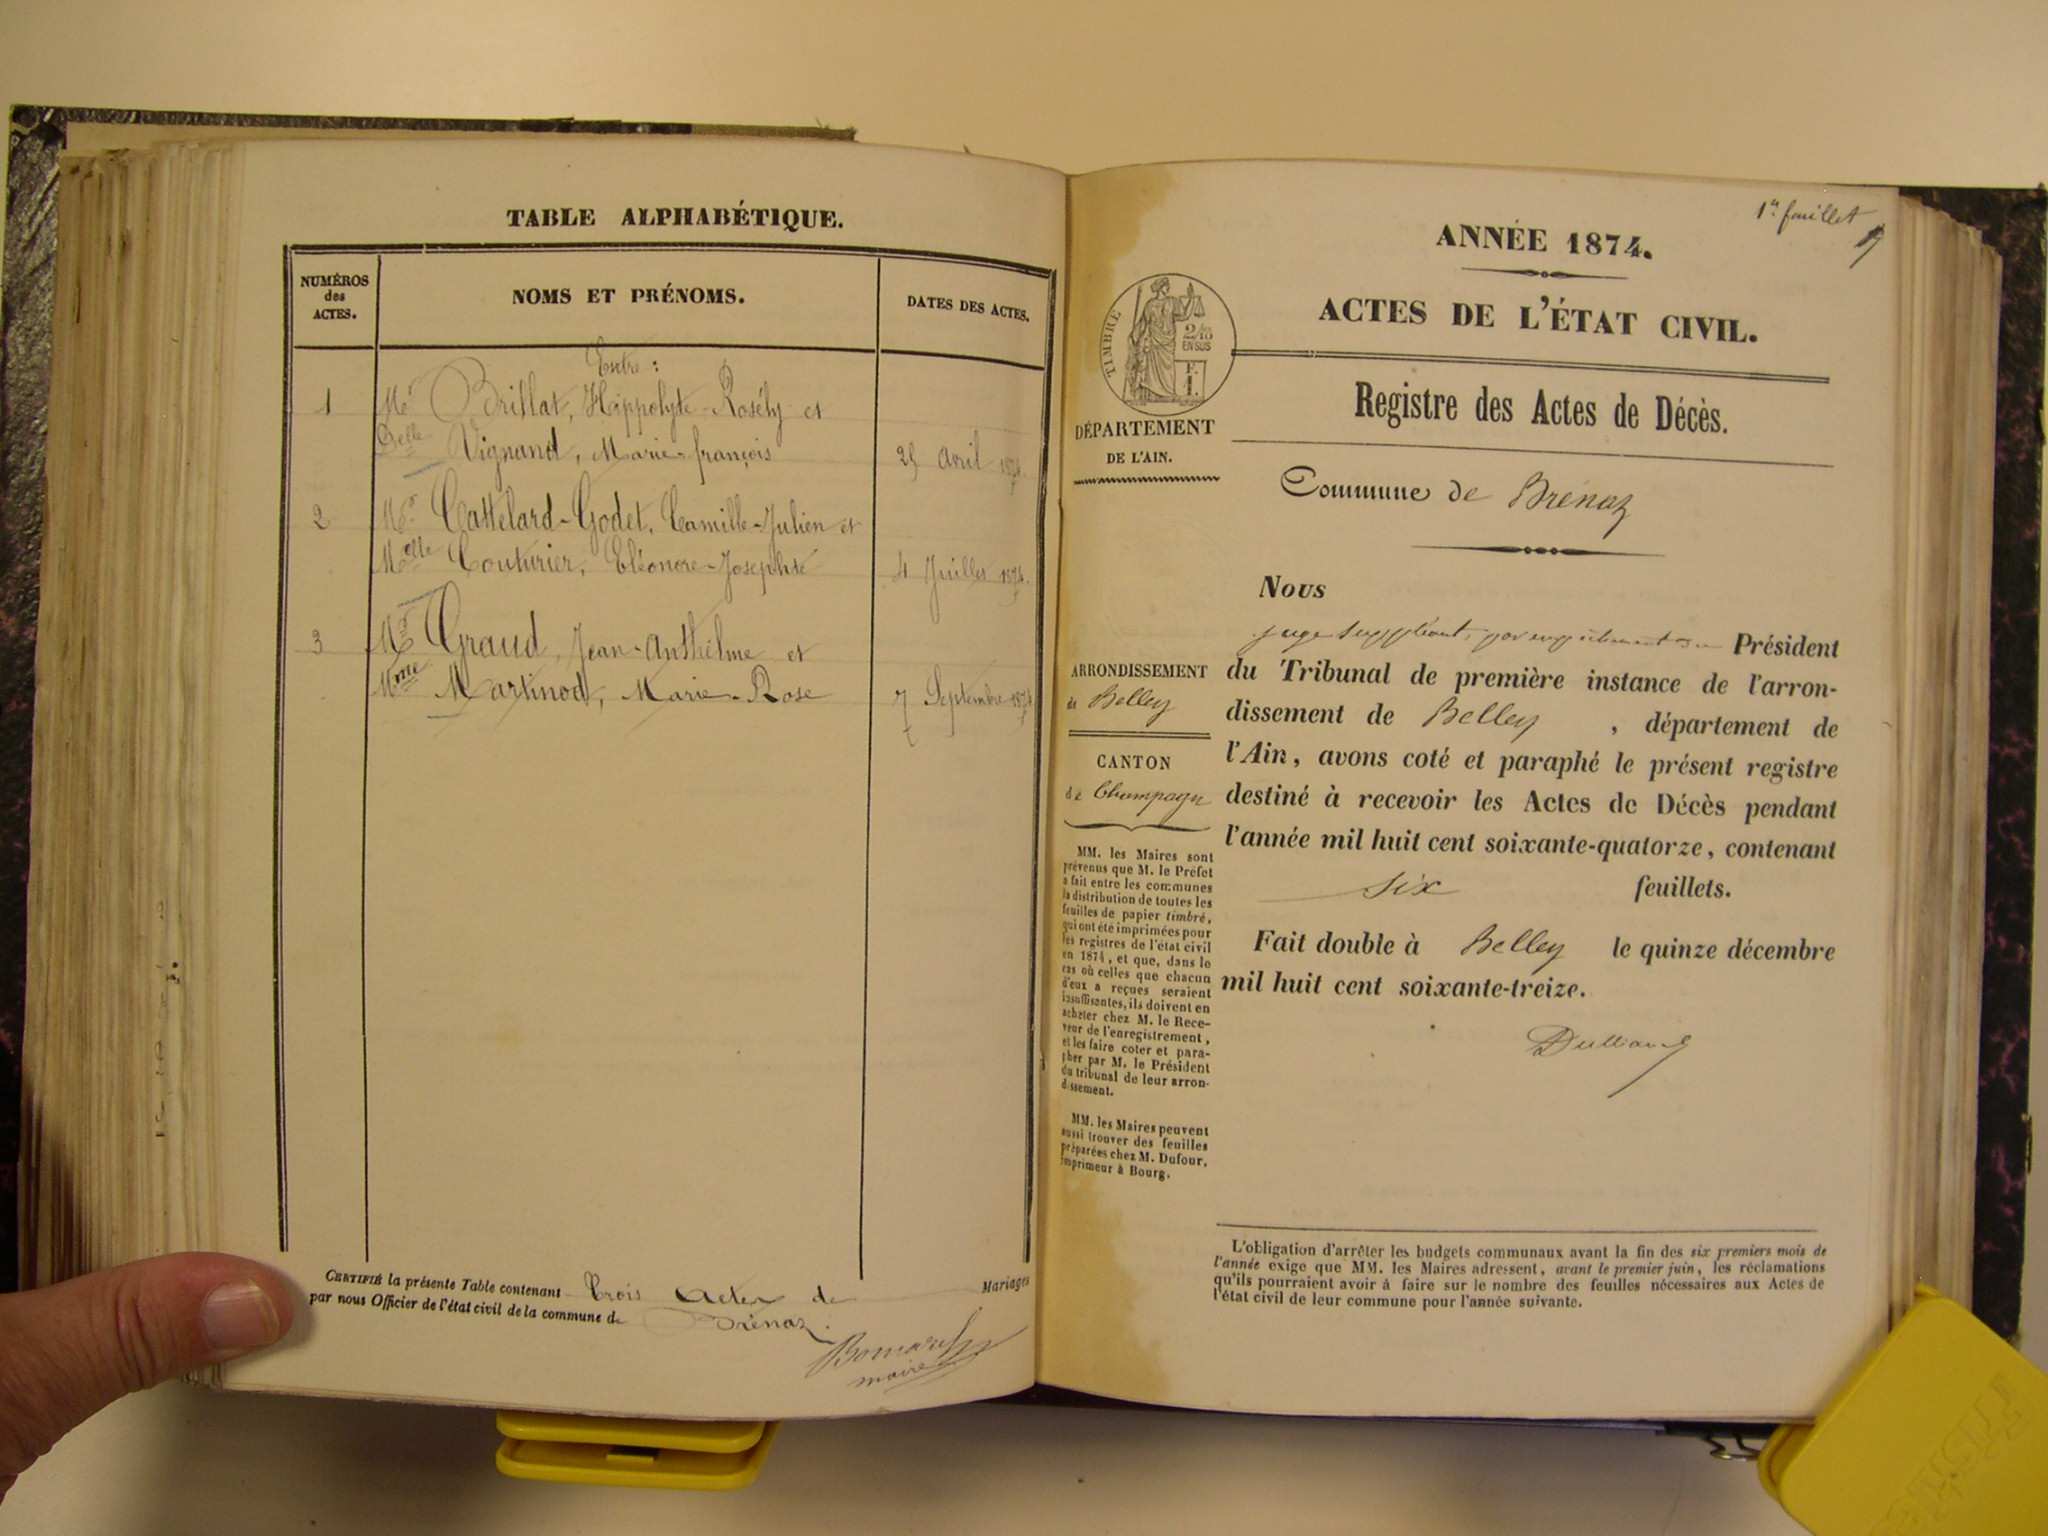 TABLE ALPHABÉTIQUE.
NUMÉROS
des
ACTES.
NOMS ET PRÉNOMS.
DATES DES ACTES.
Entre :
1 Mr Brillat, Hippolyte-Rosély et
Delle Vignand, Marie-françois 25 Avril 1874
2 Mr Cattelard-Godet, Camille-Julien et
Melle Couturier, Eléonore-Josephte 4 Juillet 1874.
3 Mr Graud, Jean-Anthelme et
Mme Martinod, Marie-Rose 7 Septembre 1874
CERTIFIÉ la présente Table contenant Trois Actes de Mariages
par nous Officier de l'état civil de la commune de Brénaz.
maire
1er feuillet
ANNÉE 1874.
ACTES DE L'ÉTAT CIVIL.
TIMBRE
2/10
EN SUS
F.
1.
Registre des Actes de Décès.
DÉPARTEMENT
DE L'AIN.
Commune de Brénaz
Nous
juge suppléant, par empêchement du Président
du Tribunal de première instance de l'arron-
dissement de Belley , département de
l'Ain, avons coté et paraphé le présent registre
destiné à recevoir les Actes de Décès pendant
l'année mil huit cent soixante-quatorze, contenant
six feuillets.
Fait double à Belley le quinze décembre
mil huit cent soixante-treize.
ARRONDISSEMENT
de Belley
CANTON
de Champagne
MM. les Maires sont
prévenus que M. le Préfet
a fait entre les communes
la distribution de toutes les
feuilles de papier timbré,
qui ont été imprimées pour
les registres de l'état civil
en 1874, et que, dans le
cas où celles que chacun
d'eux a reçues seraient
insuffisantes, ils doivent en
acheter chez M. le Rece-
veur de l'enregistrement,
et les faire coter et para-
pher par M. le Président
du tribunal de leur arron-
dissement.
MM. les Maires peuvent
aussi trouver des feuilles
préparées chez M. Dufour,
imprimeur à Bourg.
L'obligation d'arrêter les budgets communaux avant la fin des six premiers mois de
l'année exige que MM. les Maires adressent, avant le premier juin, les réclamations
qu'ils pourraient avoir à faire sur le nombre des feuilles nécessaires aux Actes de
l'état civil de leur commune pour l'année suivante.